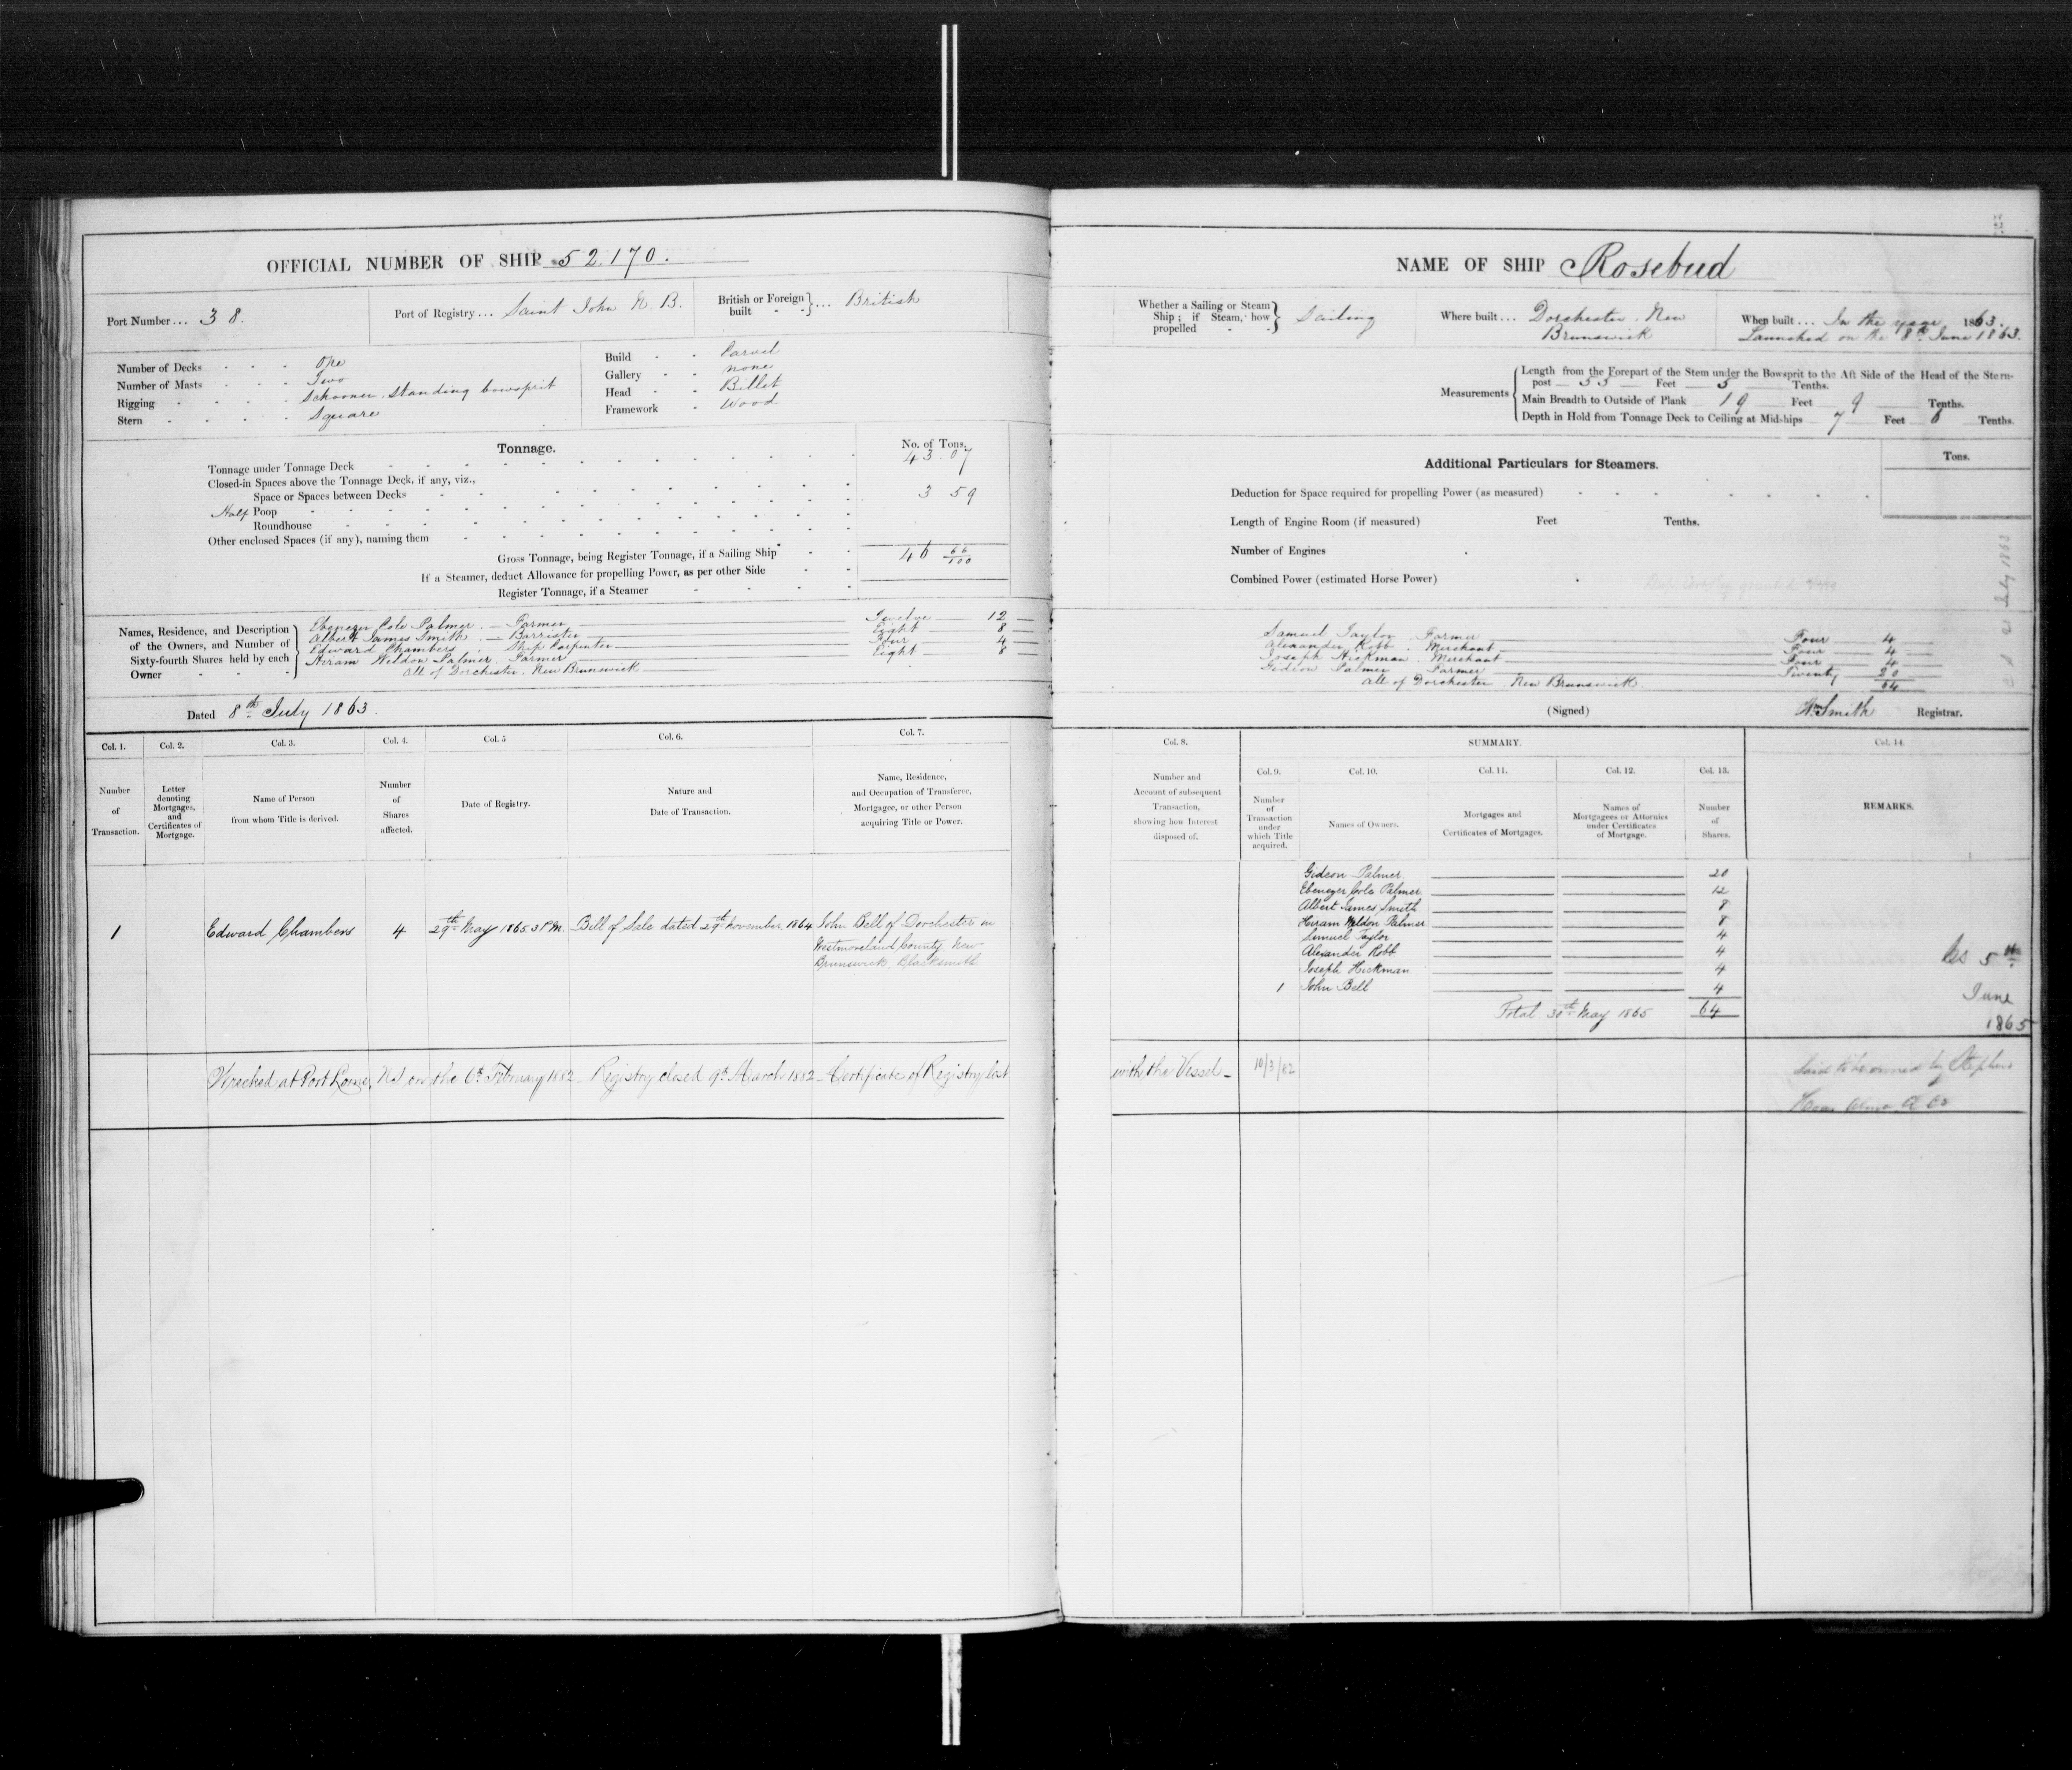 OFFICIAL NUMBER OF SHIP 52.170.
Port Number... 38.
Port of Registry... Saint John N. B.
British or Foreign built } ... British
Number of Decks - - - One
Number of Masts - - - Two
Rigging - - - - Schooner, standing bowsprit
Stern - - - - Square
Build - - Carvel
Gallery - - none
Head - - Billet
Framework - Wood
Tonnage.
No. of Tons.
Tonnage under Tonnage Deck 43.07
Closed-in Spaces above the Tonnage Deck, if any, viz.,
Space or Spaces between Decks 3 59
Half Poop
Roundhouse
Other enclosed Spaces (if any), naming them
Gross Tonnage, being Register Tonnage, if a Sailing Ship 46 66/100
If a Steamer, deduct Allowance for propelling Power, as per other Side
Register Tonnage, if a Steamer
Names, Residence, and Description of the Owners, and Number of Sixty-fourth Shares held by each Owner
Ebenezer Cole Palmer. — Farmer — Twelve — 12
Albert James Smith. — Barrister — Eight — 8
Edward Chambers. Ship Carpenter — Four — 4
Hiram Weldon Palmer. Farmer — Eight — 8
All of Dorchester. New Brunswick
Dated 8th July 1863.
Col. 1. Col. 2. Col. 3. Col. 4. Col. 5 Col. 6. Col. 7.
Number of Transaction.
Letter denoting Mortgages, and Certificates of Mortgage.
Name of Person from whom Title is derived.
Number of Shares affected.
Date of Registry.
Nature and Date of Transaction.
Name, Residence, and Occupation of Transferee, Mortgagee, or other Person acquiring Title or Power.
1 Edward Chambers 4 29th May 1865 3 P.M. Bill of Sale dated 29th November 1864 John Bell of Dorchester in
Westmoreland County New
Brunswick. Blacksmith
Wrecked at Port Lorne, NS on the 6th February 1882 Registry closed 9th March 1882 - Certificate of Registry lost
NAME OF SHIP Rosebud
Whether a Sailing or Steam Ship; if Steam, how propelled } Sailing
Where built... Dorchester. New
Brunswick
When built... In the year 1863.
Launched on the 8th June 1863.
Measurements
Length from the Forepart of the Stem under the Bowsprit to the Aft Side of the Head of the Stern-
post — 53 — Feet — 5 — Tenths.
Main Breadth to Outside of Plank — 19 Feet — 9 Tenths.
Depth in Hold from Tonnage Deck to Ceiling at Midships — 7 Feet 6 Tenths.
Additional Particulars for Steamers.
Tons.
Deduction for Space required for propelling Power (as measured)
Length of Engine Room (if measured) Feet Tenths.
Number of Engines
Combined Power (estimated Horse Power)
July 1863
Samuel Taylor. Farmer — Four — 4
Alexander Robb. Merchant — Four — 4
Joseph Hickman. Merchant — Four — 4
Gideon Palmer Farmer — Twenty 20
All of Dorchester. New Brunswick. 64
(Signed) Wm Smith Registrar.
Col. 8. SUMMARY. Col. 14.
Col. 9. Col. 10. Col. 11. Col. 12. Col. 13.
Number and Account of subsequent Transaction, showing how Interest disposed of.
Number of Transaction under which Title acquired.
Names of Owners.
Mortgages and Certificates of Mortgages.
Names of Mortgagees or Attornies under Certificates of Mortgage.
Number of Shares.
REMARKS.
Gideon Palmer 20
Ebenezer Cole Palmer 12
Albert James Smith 8
Hiram Weldon Palmer 8
Samuel Taylor 4
Alexander Robb 4
Joseph Hickman 4
1 John Bell 4
Total 30th May 1865 64
5th
June
1865
with the Vessel - 10/3/82
Said to be owned by Stephen
Alma A Co